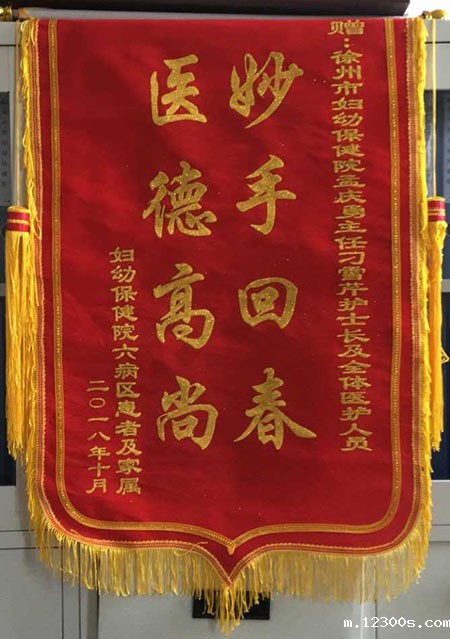 赠：徐州市妇幼保健院孟庆勇主任刁雪芹护士长及全体医护人员
妙手回春
医德高尚
妇幼保健院六病区患者及家属
二〇一八年十月
m.12300s.com